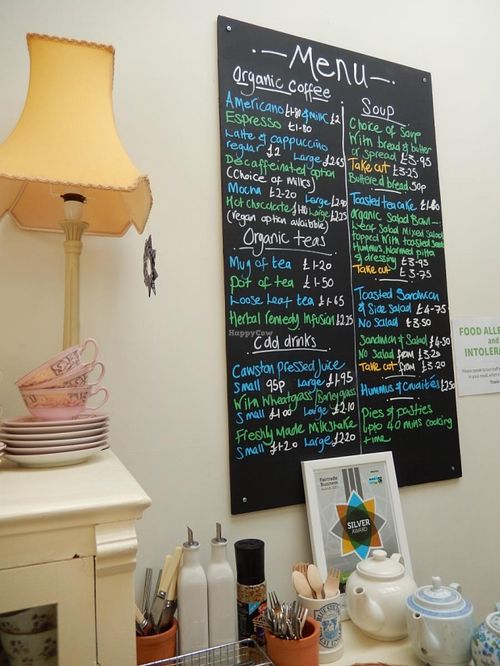 Menu
Organic coffee
Americano £1.80 & milk £2
Espresso £1.80
Latte & cappuccino
regular £2 Large £2.65
Decaffeinated option
(Choice of milks)
Mocha £2.20 Large £2.90
Hot chocolate Large £2.25
(vegan option available)
Organic teas
Mug of tea £1.20
Pot of tea £1.50
Loose Leaf tea £1.65
Herbal remedy Infusion £2.25
Cold drinks
Cawston Pressed Juice
Small 95p Large £1.95
With Wheatgrass/Barleygrass
Small £1.00 Large £2.10
Freshly Made Milkshake
Small £1.20 Large £2.20
Soup
Choice of Soup
With bread & butter
or Spread £3.95
Take out £3.25
Buttered bread 50p
Toasted teacake £1.80
Organic Salad Bowl-
Leaf salad Mixed salad
topped With toasted seeds
Hummus, Warmed pitta
& dressing £3.95
Take out £3.75
Toasted Sandwich
& Side salad £4.75
No Salad £3.50
Sandwich & Salad £4.50
No Salad from £3.20
Take out from £3.20
Hummus & Crudites £2.50
Pies & pasties
Upto 40 mins cooking
time
FOOD ALLE
and
INTOLERA
HappyCow
Fairtrade
Business
Awards
SILVER
AWARD